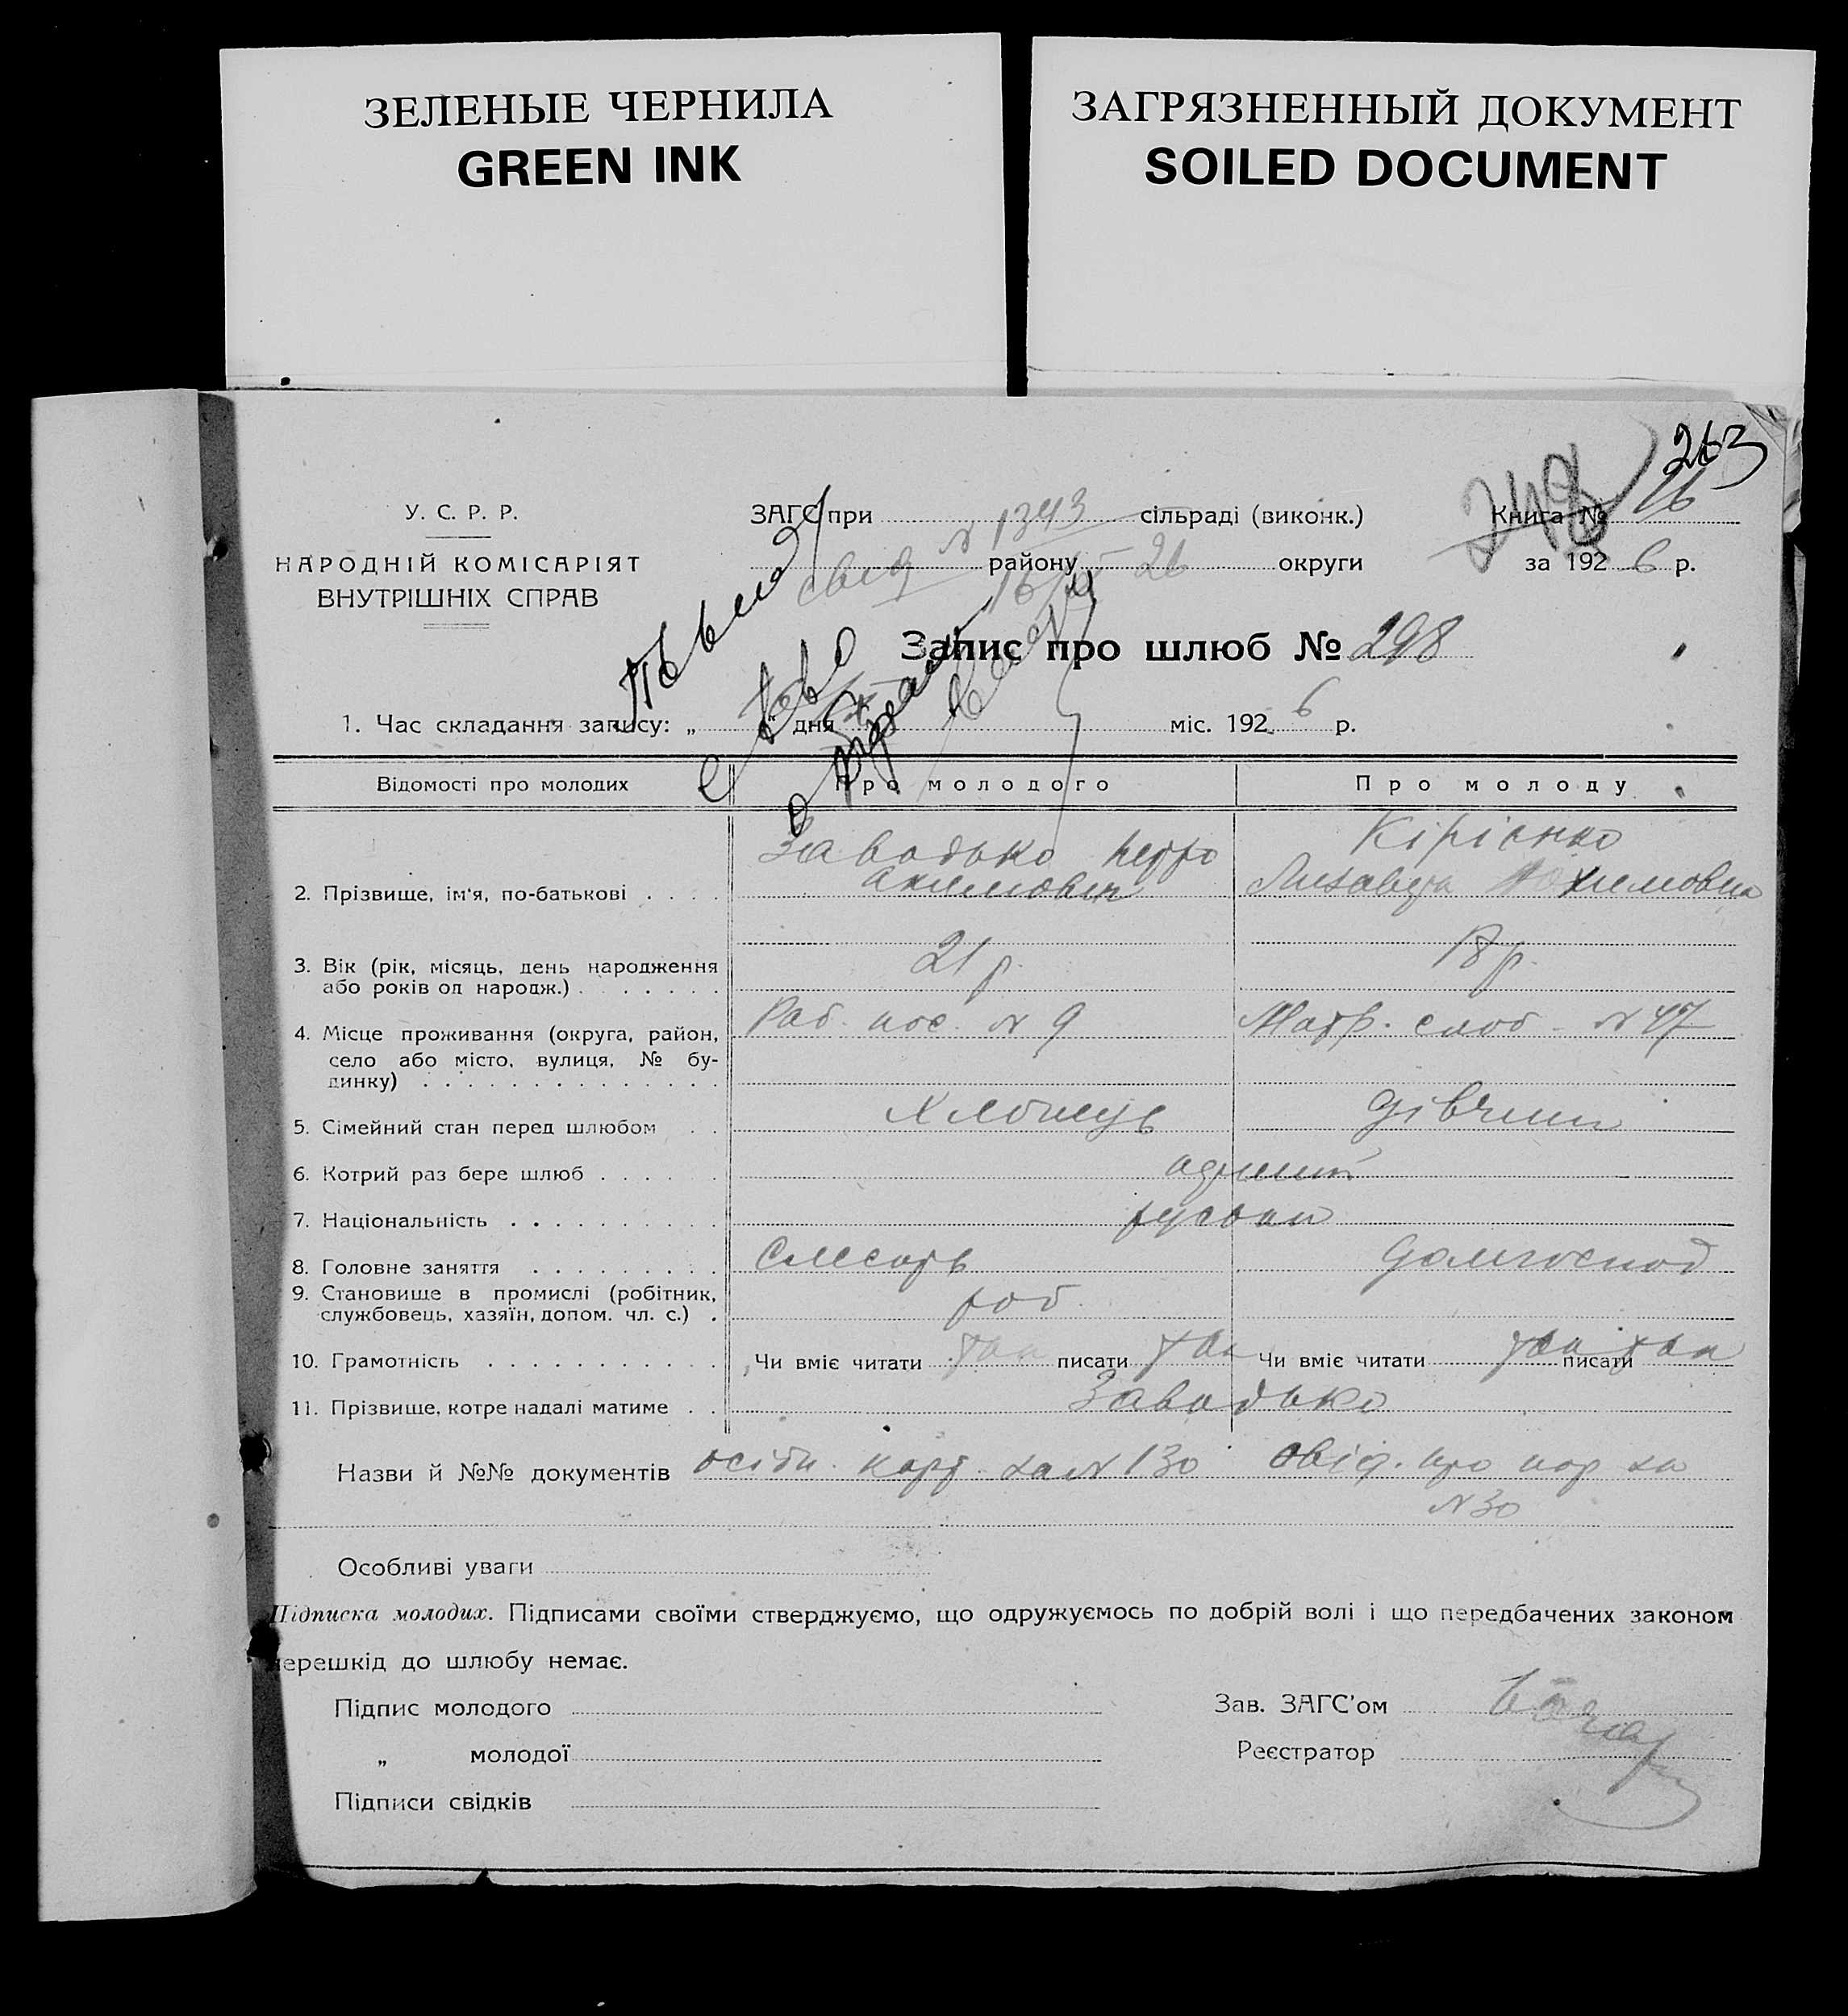 ЗЕЛЕНЫЕ ЧЕРНИЛА
GREEN INK
ЗАГРЯЗНЕННЫЙ ДОКУМЕНТ
SOILED DOCUMENT
263
248
У. С. Р. Р.
НАРОДНІЙ КОМІСАРІЯТ
ВНУТРІШНІХ СПРАВ
ЗАГС при N 1343 сільраді (виконк.)
свид району 26 округи
Книга № 16
за 1926 р.
Запис про шлюб № 298
1. Час складання запису: „ " дня міс. 1926 р.
Відомості про молодих
Про молодого
Про молоду
2. Прізвище, ім'я, по-батькові
Завадько Петро
Акимович
Кірієнко
Лизавета Юхимовна
3. Вік (рік, місяць, день народження
або років од народж.)
21 р.
18 р.
4. Місце проживання (округа, район,
село або місто, вулиця, № бу-
динку)
Раб. пос. N 9
Матр. слоб. N 47
5. Сімейний стан перед шлюбом
Хлопець
дівчина
6. Котрий раз бере шлюб
7. Національність
8. Головне заняття
Слесарь
домгоспод
9. Становище в промислі (робітник,
службовець, хазяїн, допом. чл. с.)
роб.
10. Грамотність
Чи вміє читати так писати так
Чи вміє читати так писати так
11. Прізвище, котре надалі матиме
Завадько
Назви й №№ документів осібн. карт. за N 130 Свід. про нар за
N 30
Особливі уваги
Підписка молодих. Підписами своїми стверджуємо, що одружуємось по добрій волі і що передбачених законом
перешкід до шлюбу немає.
Підпис молодого
„ молодої
Підписи свідків
Зав. ЗАГС'ом
Реєстратор